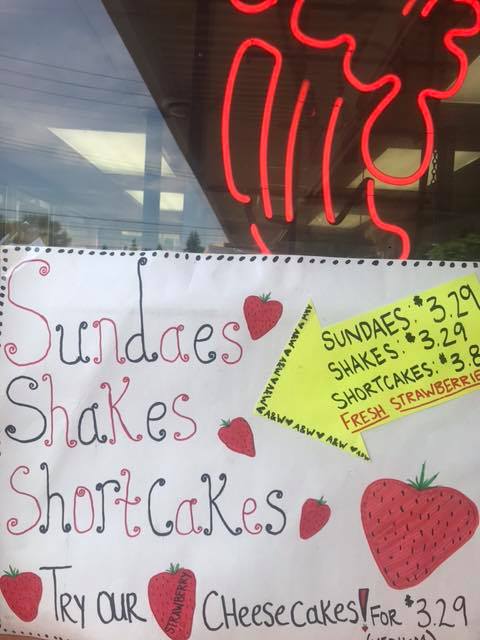 Sundaes
Shakes
ShortCakes
SUNDAES: $3.29
SHAKES: $3.29
SHORTCAKES: $3.8
FRESH STRAWBERRIE
A&W♥A&W♥A&W♥A&W
TRY OUR STRAWBERRY CHeeseCakes! FOR $3.29